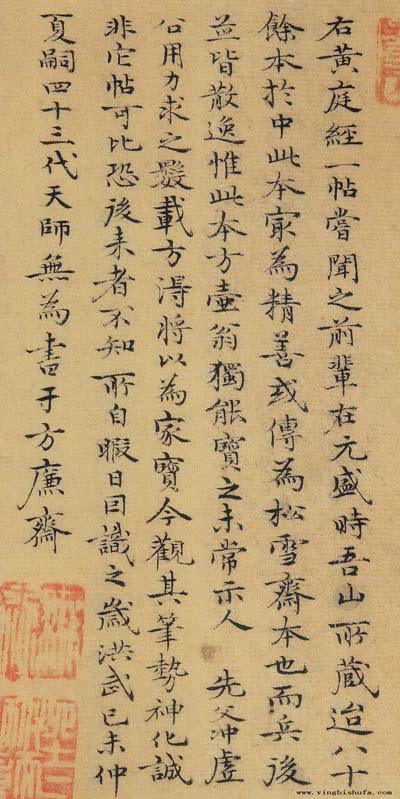 右黃庭經一帖嘗聞之前輩在元盛時吾山所蔵迨八十
餘本於中此本㝡為精善或傳為松雪齋本也而兵後
並皆散逸惟此本方壺翁獨能寶之未常示人 先父沖虛
公用力求之數載方得將以為家寶今觀其筆勢神化誠
非它帖可比恐後来者不知所自暇日因識之歲洪武己未仲
夏嗣四十三代天師無為書于方廉齋
www.yingbishufa.com